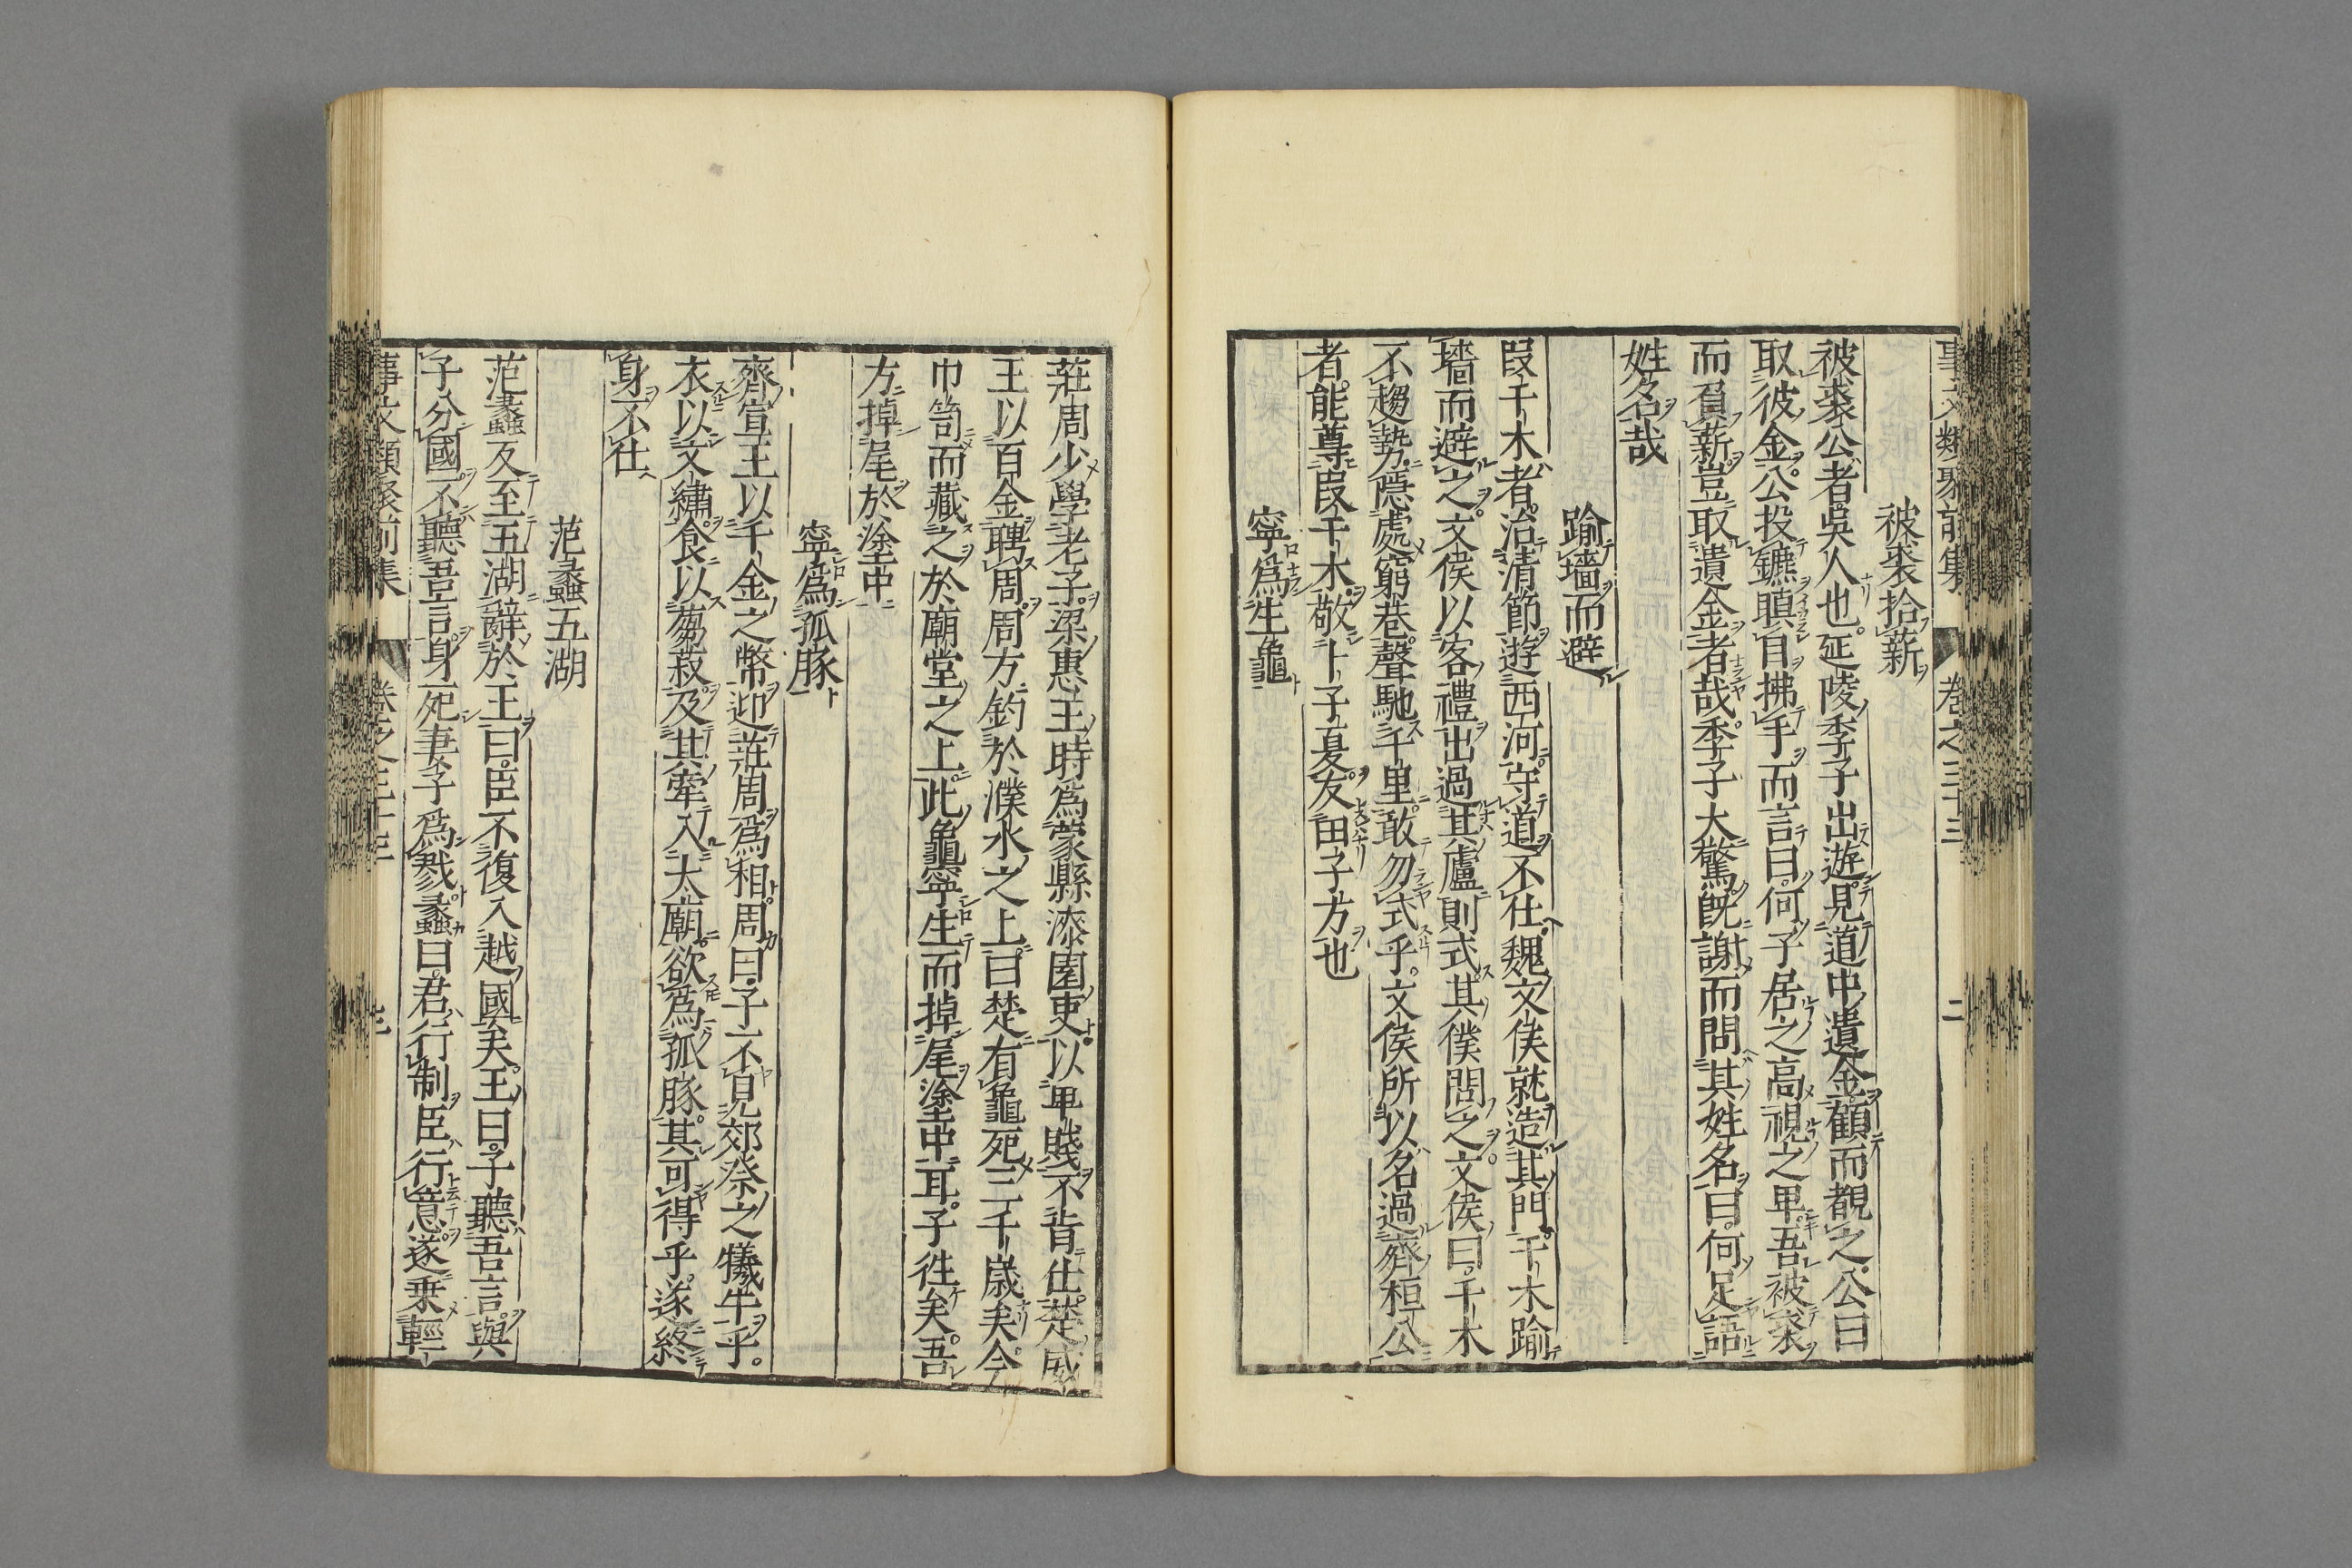 事文類聚前集 卷之三十三 二
被裘拾薪
被裘公者吳人也延陵季子出遊見道中遺金顧而覩之公曰
取彼金公投鑣瞋目拂手而言曰何子居之高視之卑吾被裘
而負薪豈取遺金者哉季子大驚既謝而問其姓名曰何足語
姓名哉
踰墻而避
段干木者治清節遊西河守道不仕魏文侯就造其門干木踰
墻而避之文侯以客禮出過其廬則式其僕問之文侯曰干木
不趨勢隱處窮巷聲馳千里敢勿式乎文侯所以名過齊桓公
者能尊段干木敬卜子夏友田子方也
寧爲生龜
莊周少學老子梁惠王時爲蒙縣漆園吏以卑賤不肯仕楚威
王以百金聘周周方釣於濮水之上曰楚有龜死三千歲矣今
巾笥而藏之於廟堂之上此龜寧生而掉尾塗中耳子徃矣吾
方掉尾於塗中
寧爲孤豚
齊宣王以千金之幣迎莊周爲相周曰子不見郊祭之犧牛乎
衣以文繡食以蒭菽及其牽入太廟欲爲孤豚其可得乎遂終
身不仕
范蠡五湖
范蠡反至五湖辭於王曰臣不復入越國矣王曰子聽吾言與
子分國不聽吾言身死妻子爲戮蠡曰君行制臣行意遂乗輕
事文類聚前集 卷之三十三